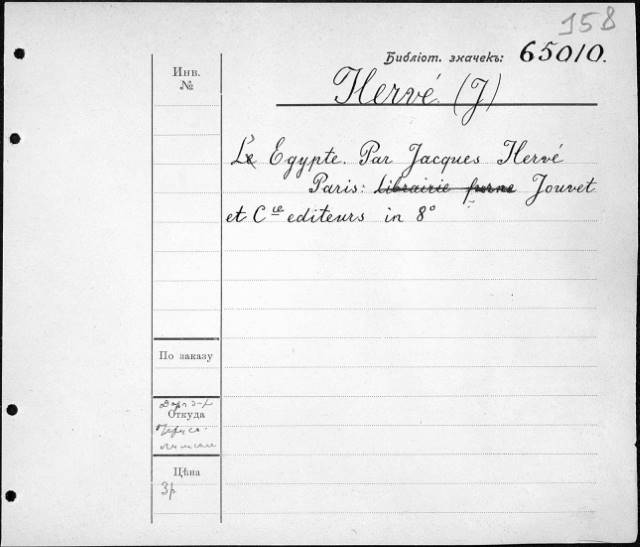 158
Библіот. значекъ: 65010.
Инв.
№
Hervé (J)
L'Egypte. Par Jacques Hervé
Paris: librairie furne Jouvet
et Cie editeurs in 8°
По заказу
Откуда
Цѣна
3р